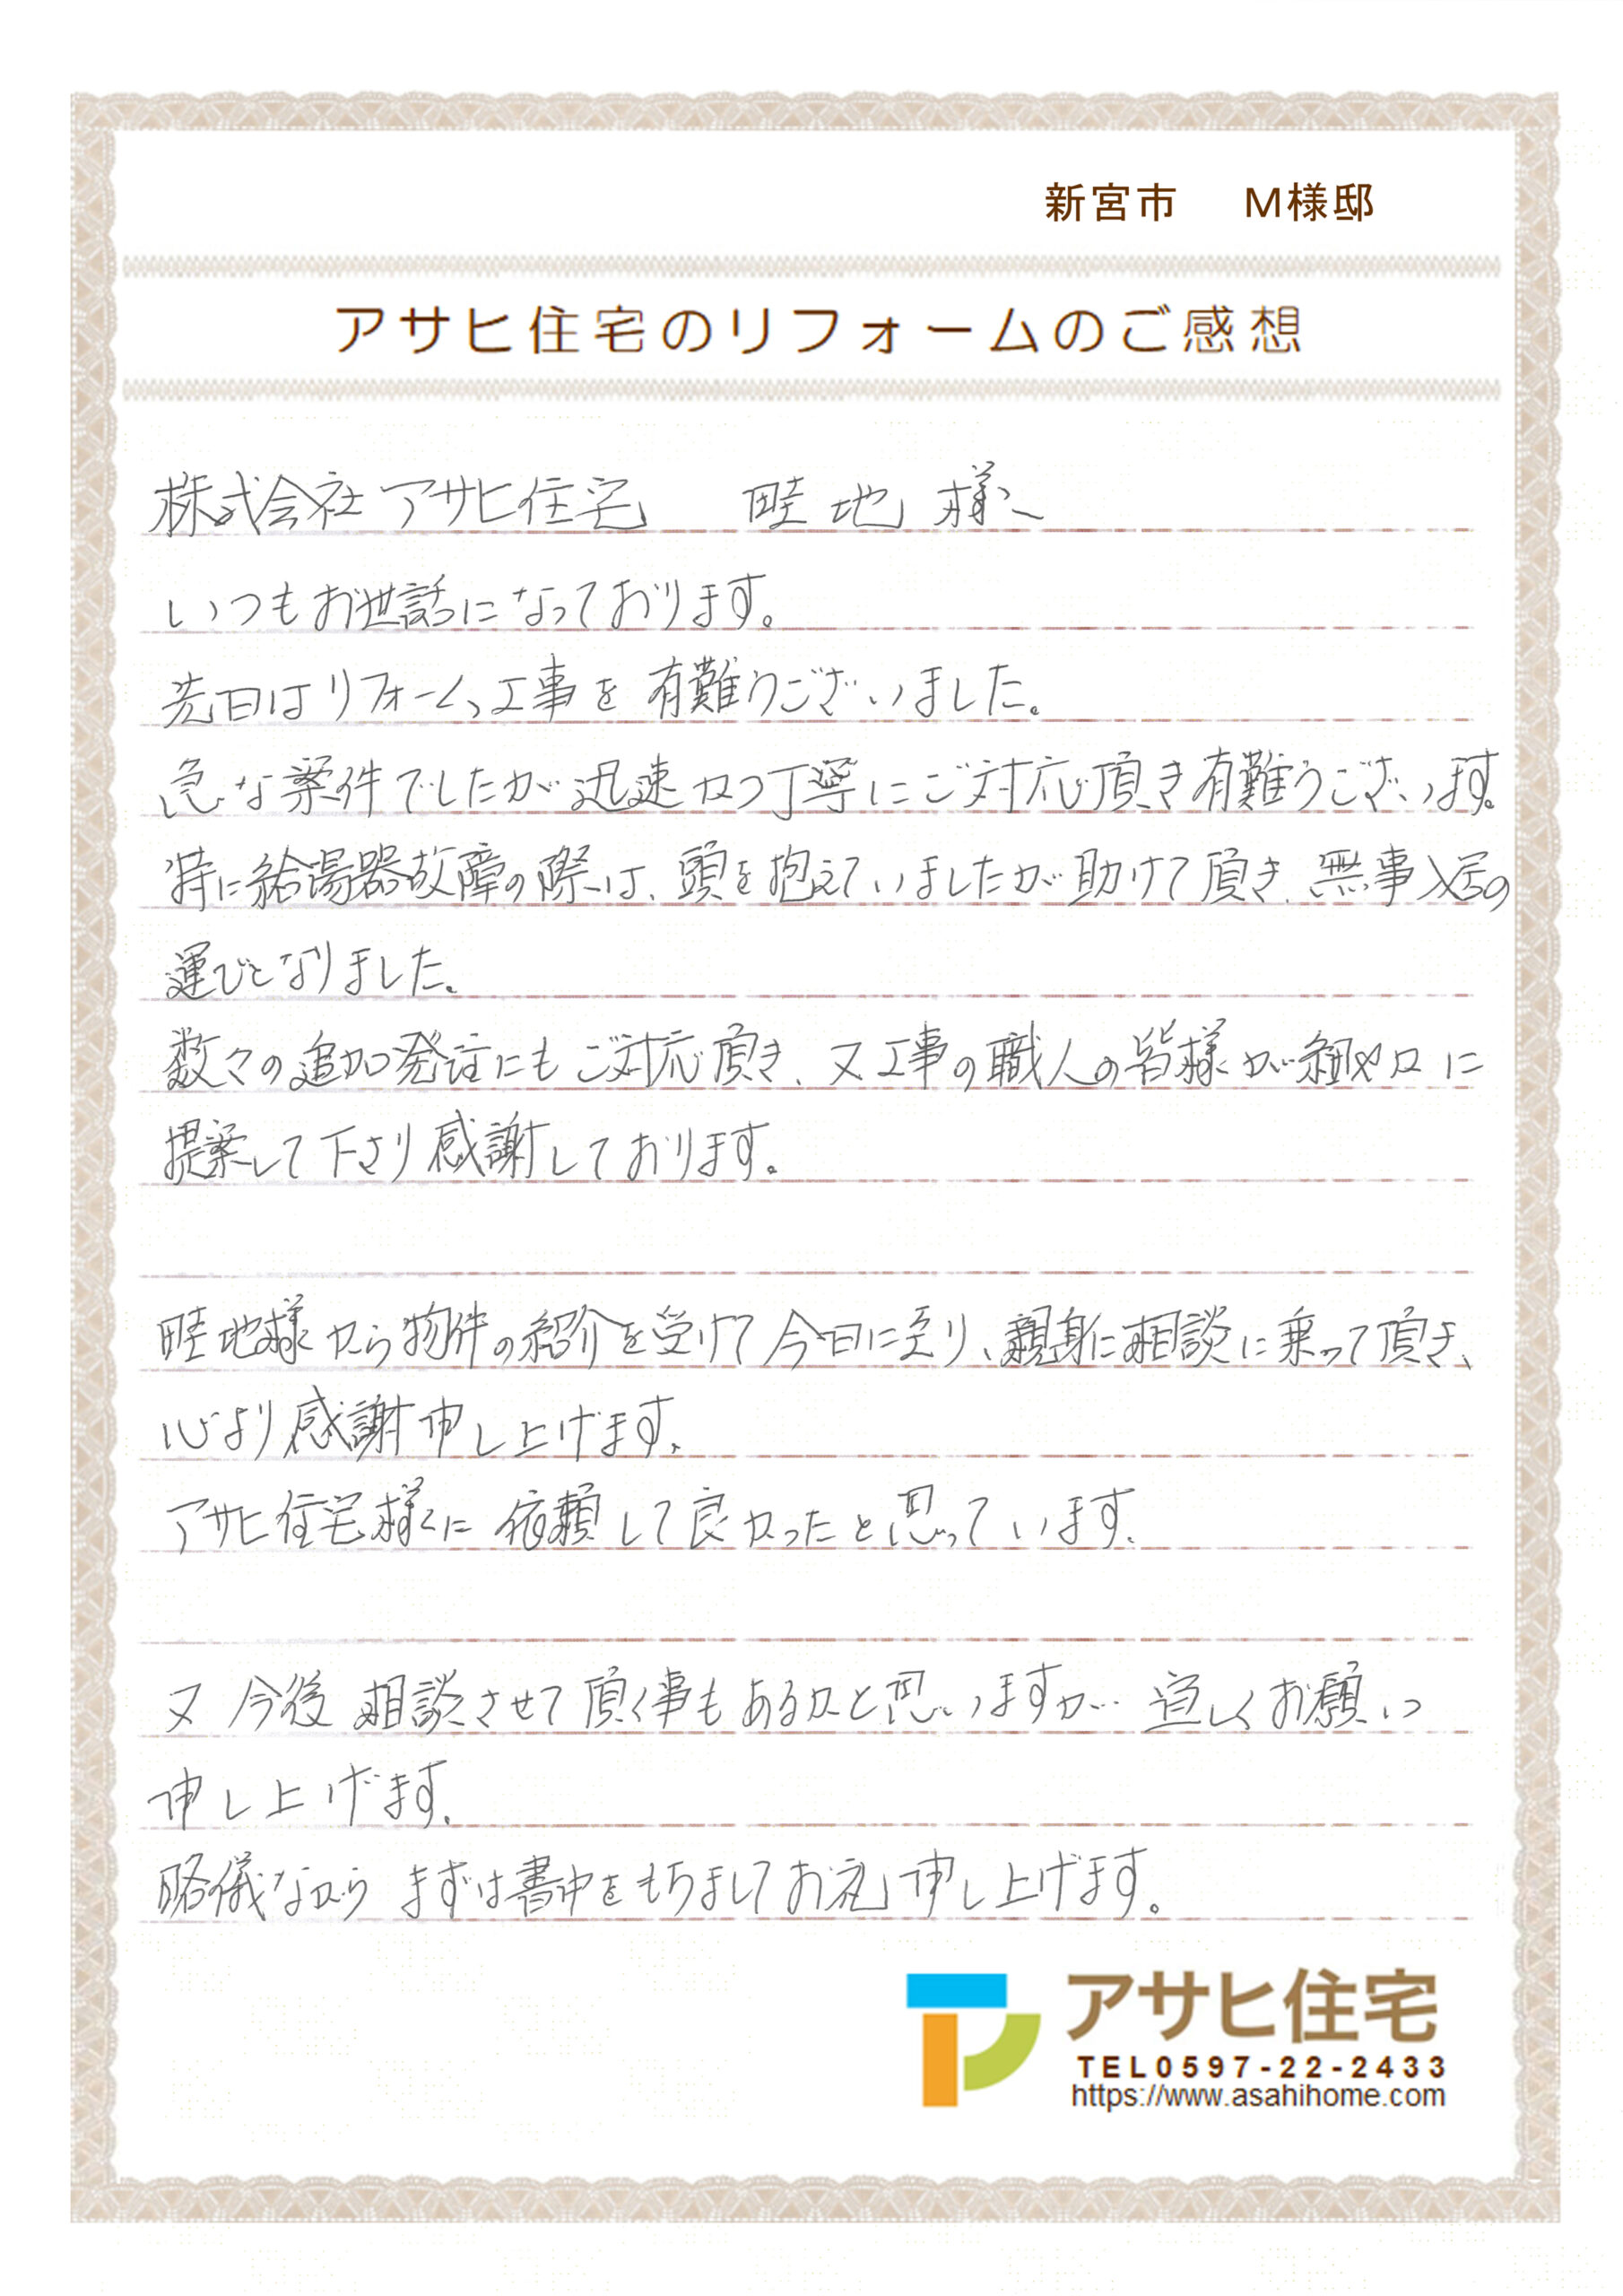 新宮市 M様邸
アサヒ住宅のリフォームのご感想
株式会社アサヒ住宅 畦地様へ
いつもお世話になっております。
先日はリフォーム工事を有難うございました。
急な案件でしたが迅速かつ丁寧にご対応頂き有難うございます。
特に給湯器故障の際は、頭を抱えていましたが助けて頂き、無事入居の
運びとなりました。
数々の追加発注にもご対応頂き、又工事の職人の皆様が細やかに
提案して下さり感謝しております。
畦地様から物件の紹介を受けて今日に至り、親身に相談に乗って頂き、
心より感謝申し上げます。
アサヒ住宅様に依頼して良かったと思っています。
又今後相談させて頂く事もあるかと思いますが宜しくお願い
申し上げます。
略儀ながらまずは書中をもちましてお礼申し上げます。
アサヒ住宅
TEL0597-22-2433
https://www.asahihome.com